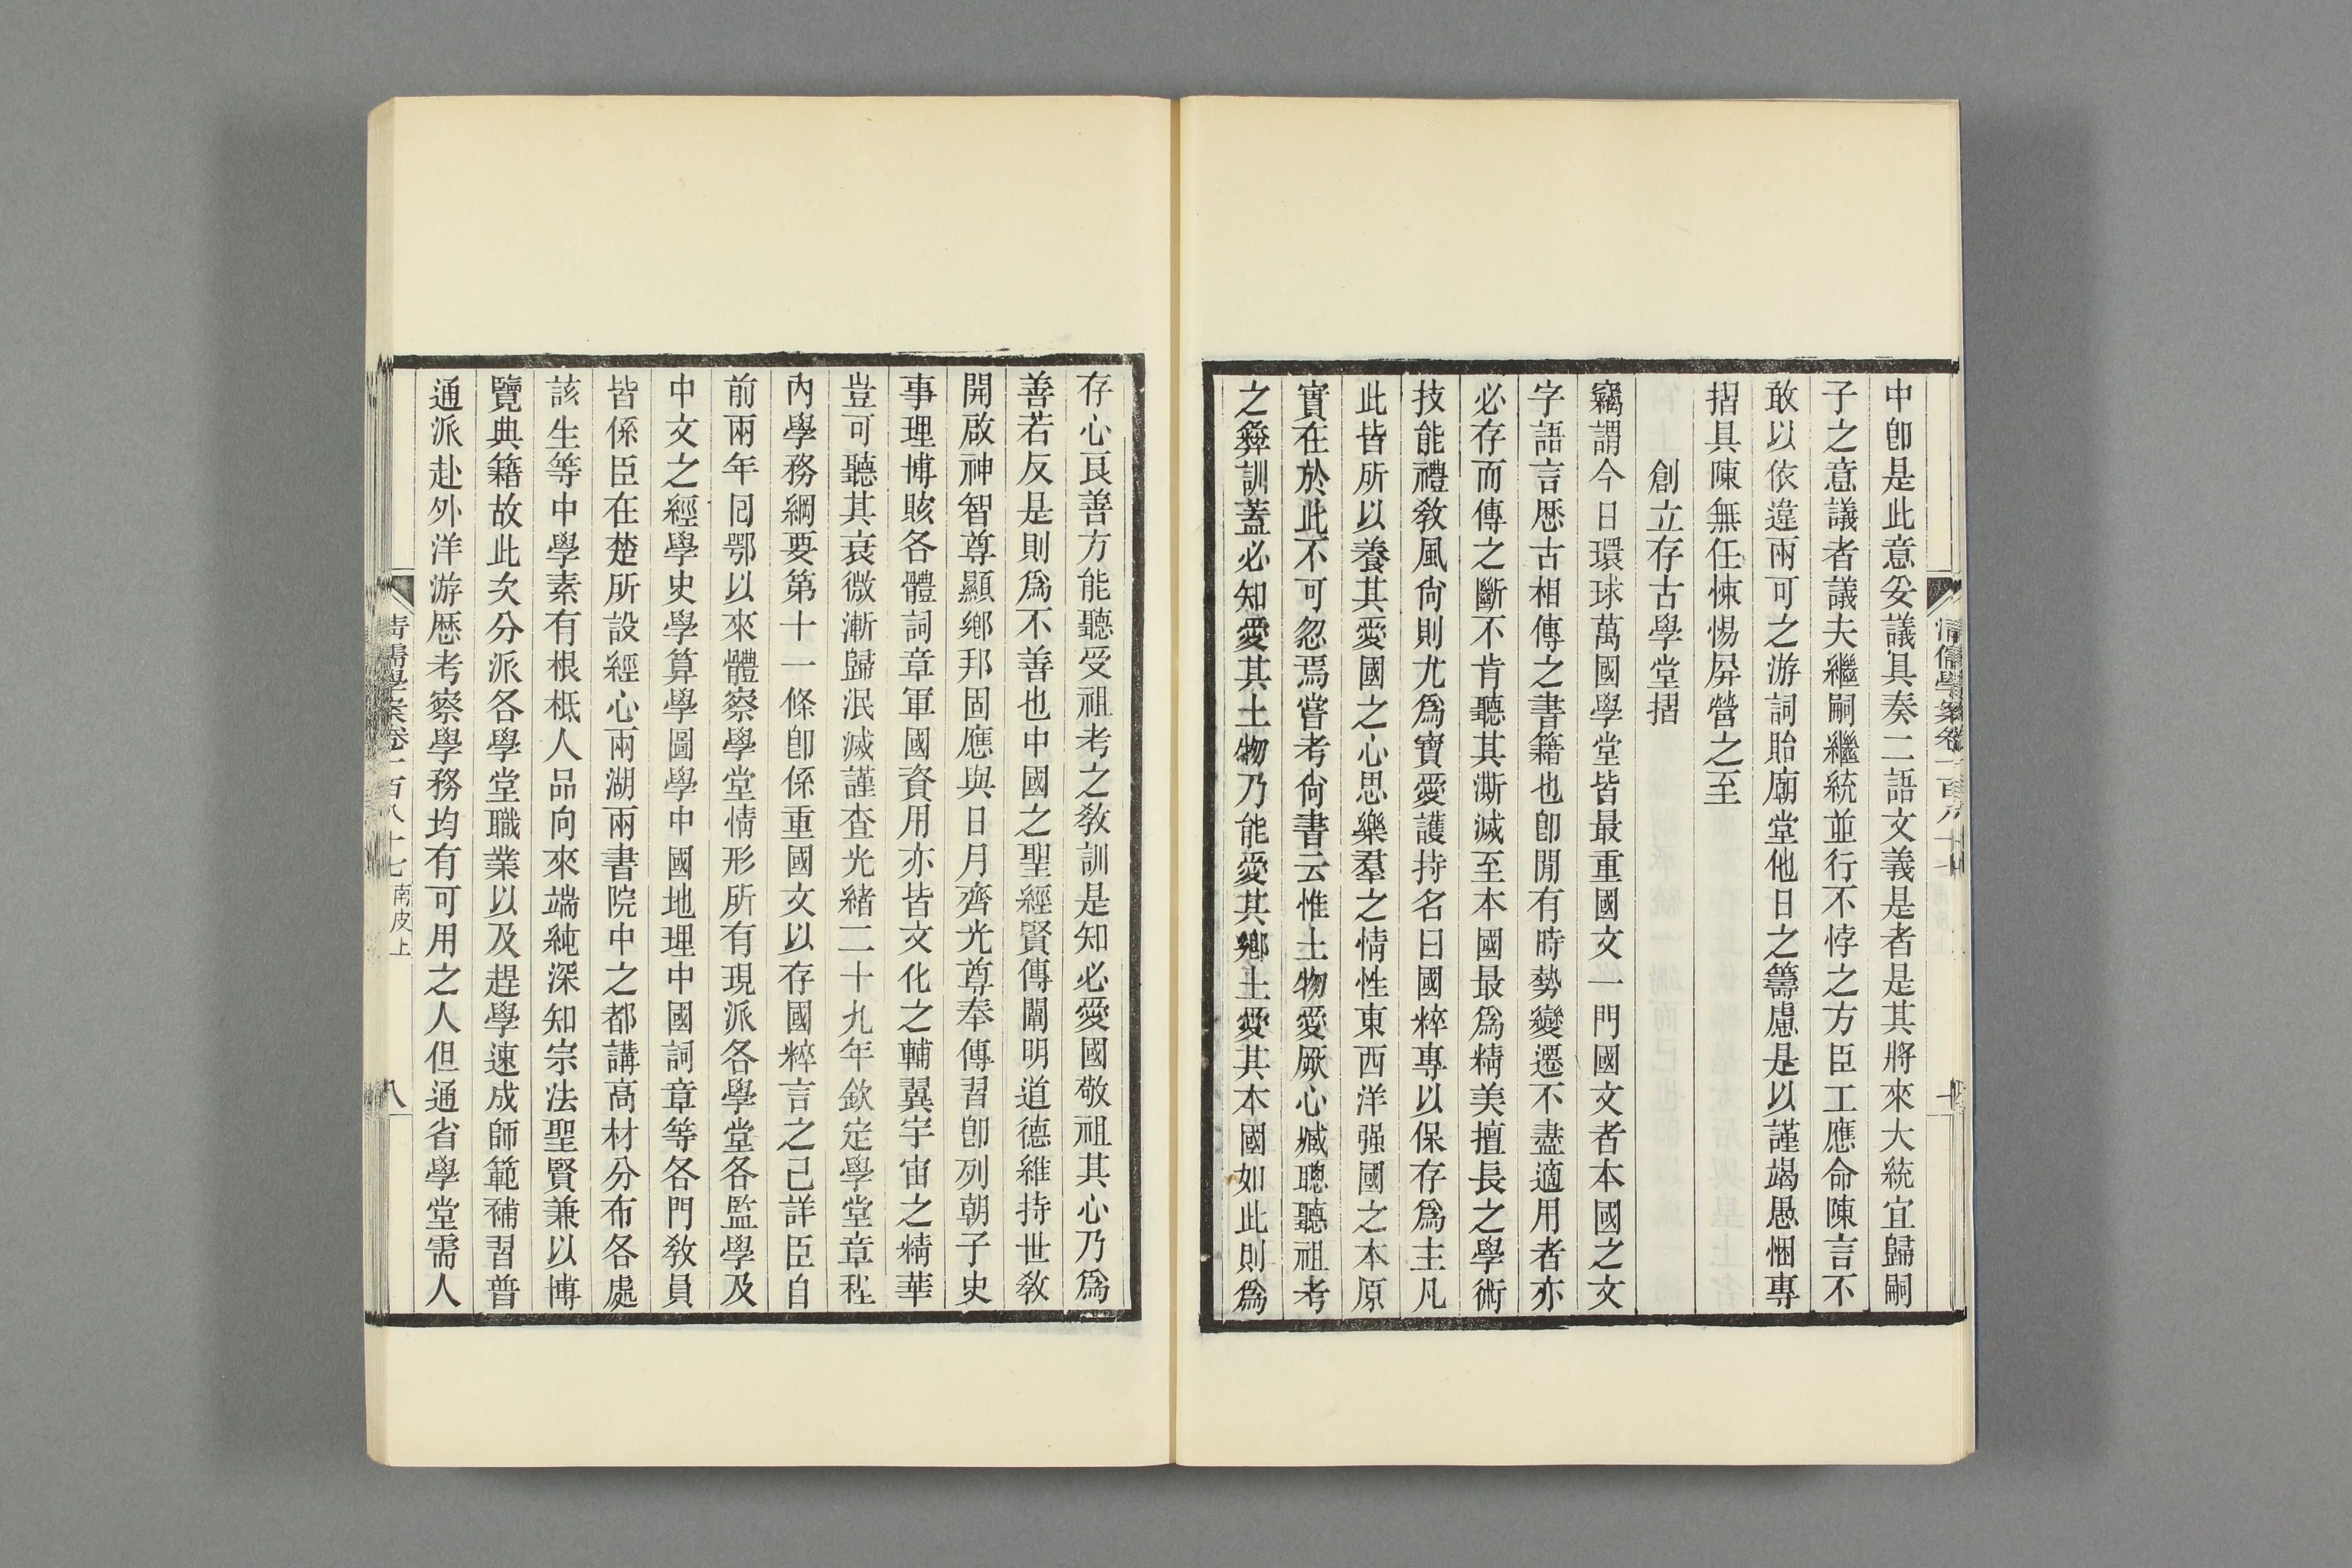 中卽是此意妥議具奏二語文義是者是其將來大統宜歸嗣
子之意議者議夫繼嗣繼統並行不悖之方臣工應命陳言不
敢以依違兩可之游詞貽廟堂他日之籌慮是以謹竭愚悃專
摺具陳無任悚惕屏營之至
創立存古學堂摺
竊謂今日環球萬國學堂皆最重國文一門國文者本國之文
字語言歷古相傳之書籍也卽閒有時勢變遷不盡適用者亦
必存而傳之斷不肯聽其澌滅至本國最爲精美擅長之學術
技能禮敎風尙則尤爲寶愛護持名曰國粹專以保存爲主凡
此皆所以養其愛國之心思樂羣之情性東西洋强國之本原
實在於此不可忽焉嘗考尙書云惟土物愛厥心臧聰聽祖考
之彝訓蓋必知愛其土物乃能愛其鄉土愛其本國如此則爲
存心良善方能聽受祖考之敎訓是知必愛國敬祖其心乃爲
善若反是則爲不善也中國之聖經賢傳闡明道德維持世敎
開啟神智尊顯鄉邦固應與日月齊光尊奉傳習卽列朝子史
事理博賅各體詞章軍國資用亦皆文化之輔翼宇宙之精華
豈可聽其衰微漸歸泯滅謹查光緒二十九年欽定學堂章程
內學務綱要第十一條卽係重國文以存國粹言之已詳臣自
前兩年回鄂以來體察學堂情形所有現派各學堂各監學及
中文之經學史學算學圖學中國地理中國詞章等各門敎員
皆係臣在楚所設經心兩湖兩書院中之都講高材分布各處
該生等中學素有根柢人品向來端純深知宗法聖賢兼以博
覽典籍故此次分派各學堂職業以及趕學速成師範補習普
通派赴外洋游歷考察學務均有可用之人但通省學堂需人
清儒學案卷一百八十七 南皮上
八